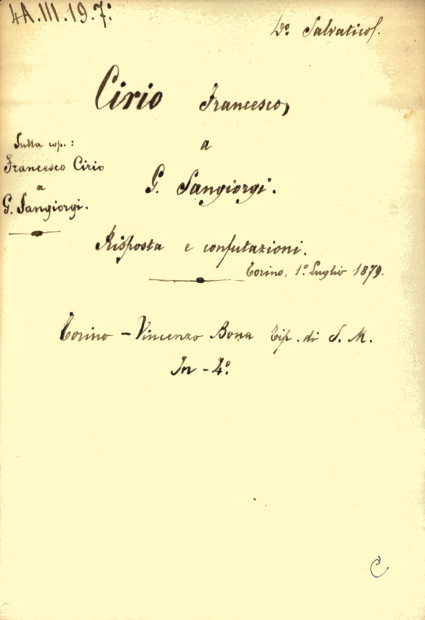 4A.III.19.7º
Dº Salvatico.
Cirio Francesco,
a
G. Sangiorgi.
Sulla cop.:
Francesco Cirio
a
G. Sangiorgi.
Risposta e confutazioni.
Torino, 1º Luglio 1879.
Torino - Vincenzo Bona Tip. di S. M.
In - 4º.
C